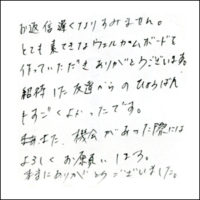 お返信遅くなりすみません。
とても素てきなウェルカムボードを
作っていただきありがとうございます。
招待した友達からのひょうばん
もすごくよかったです。
また、機会があった際には
よろしくお願いします。
本当にありがとうございました。